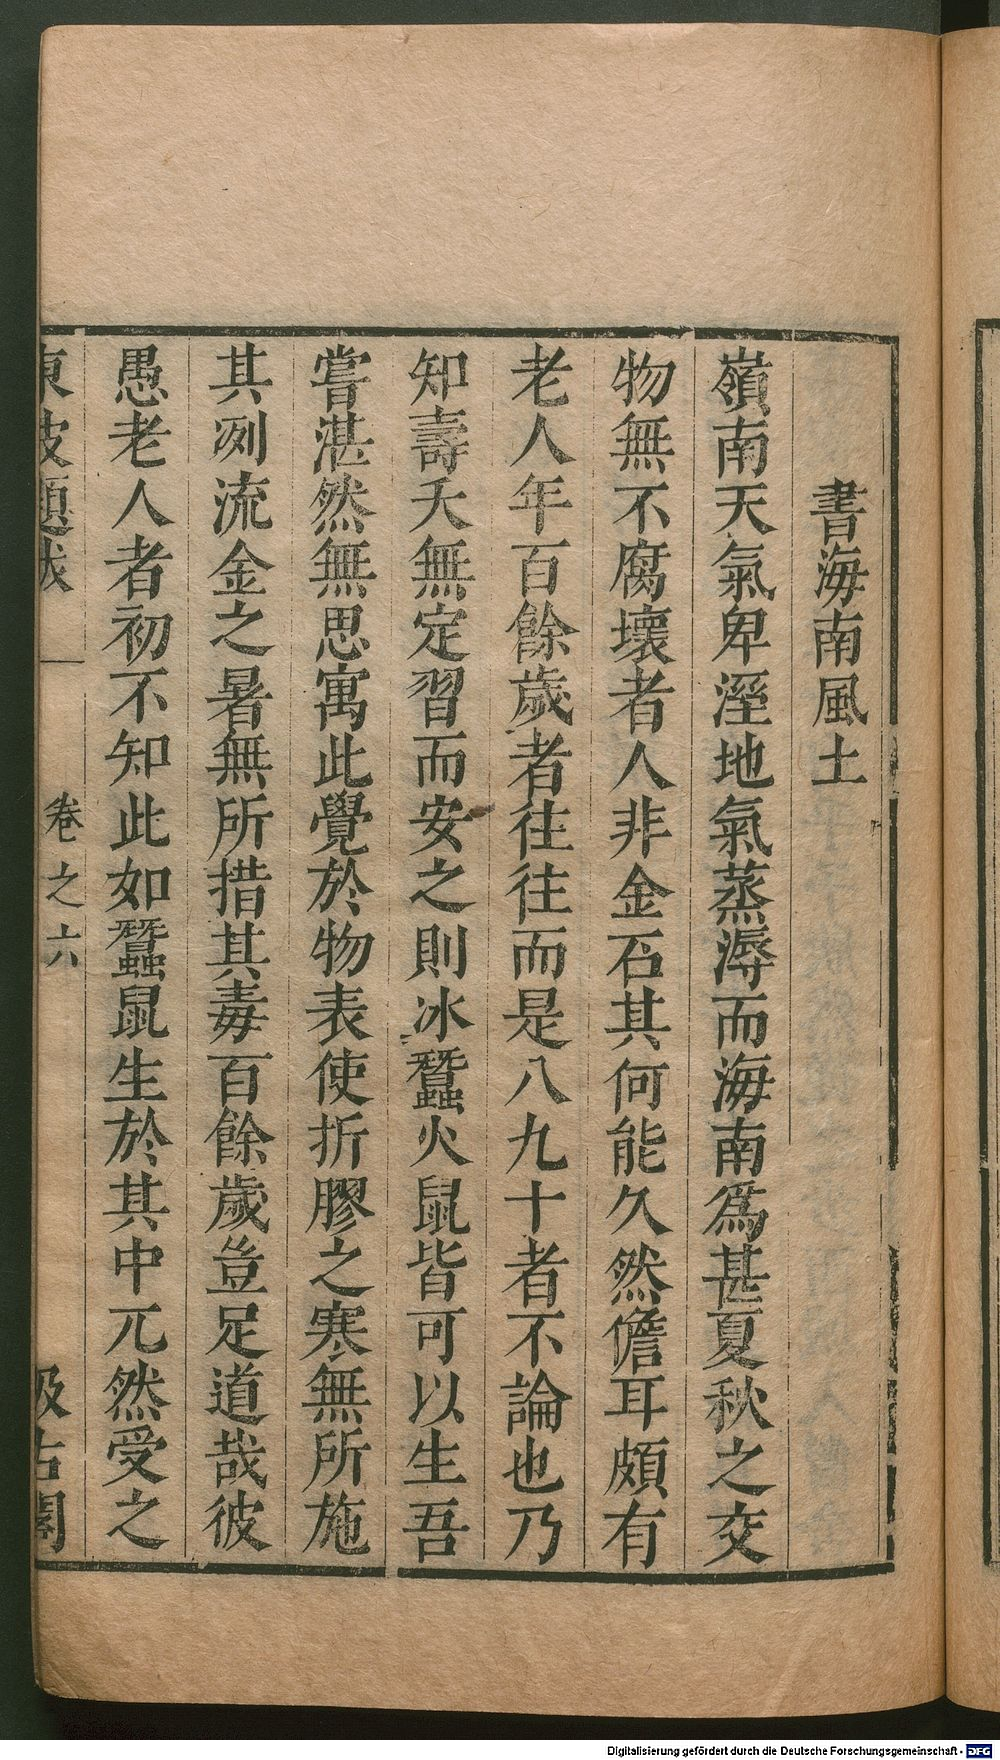 書海南風土
嶺南天氣卑溼地氣蒸溽而海南爲甚夏秋之交
物無不腐壞者人非金石其何能久然儋耳頗有
老人年百餘歲者往往而是八九十者不論也乃
知壽夭無定習而安之則冰蠶火鼠皆可以生吾
嘗湛然無思寓此覺於物表使折膠之寒無所施
其冽流金之暑無所措其毒百餘歲豈足道哉彼
愚老人者初不知此如蠶鼠生於其中兀然受之
東坡題跋 卷之六 汲古閣
Digitalisierung gefördert durch die Deutsche Forschungsgemeinschaft - DFG